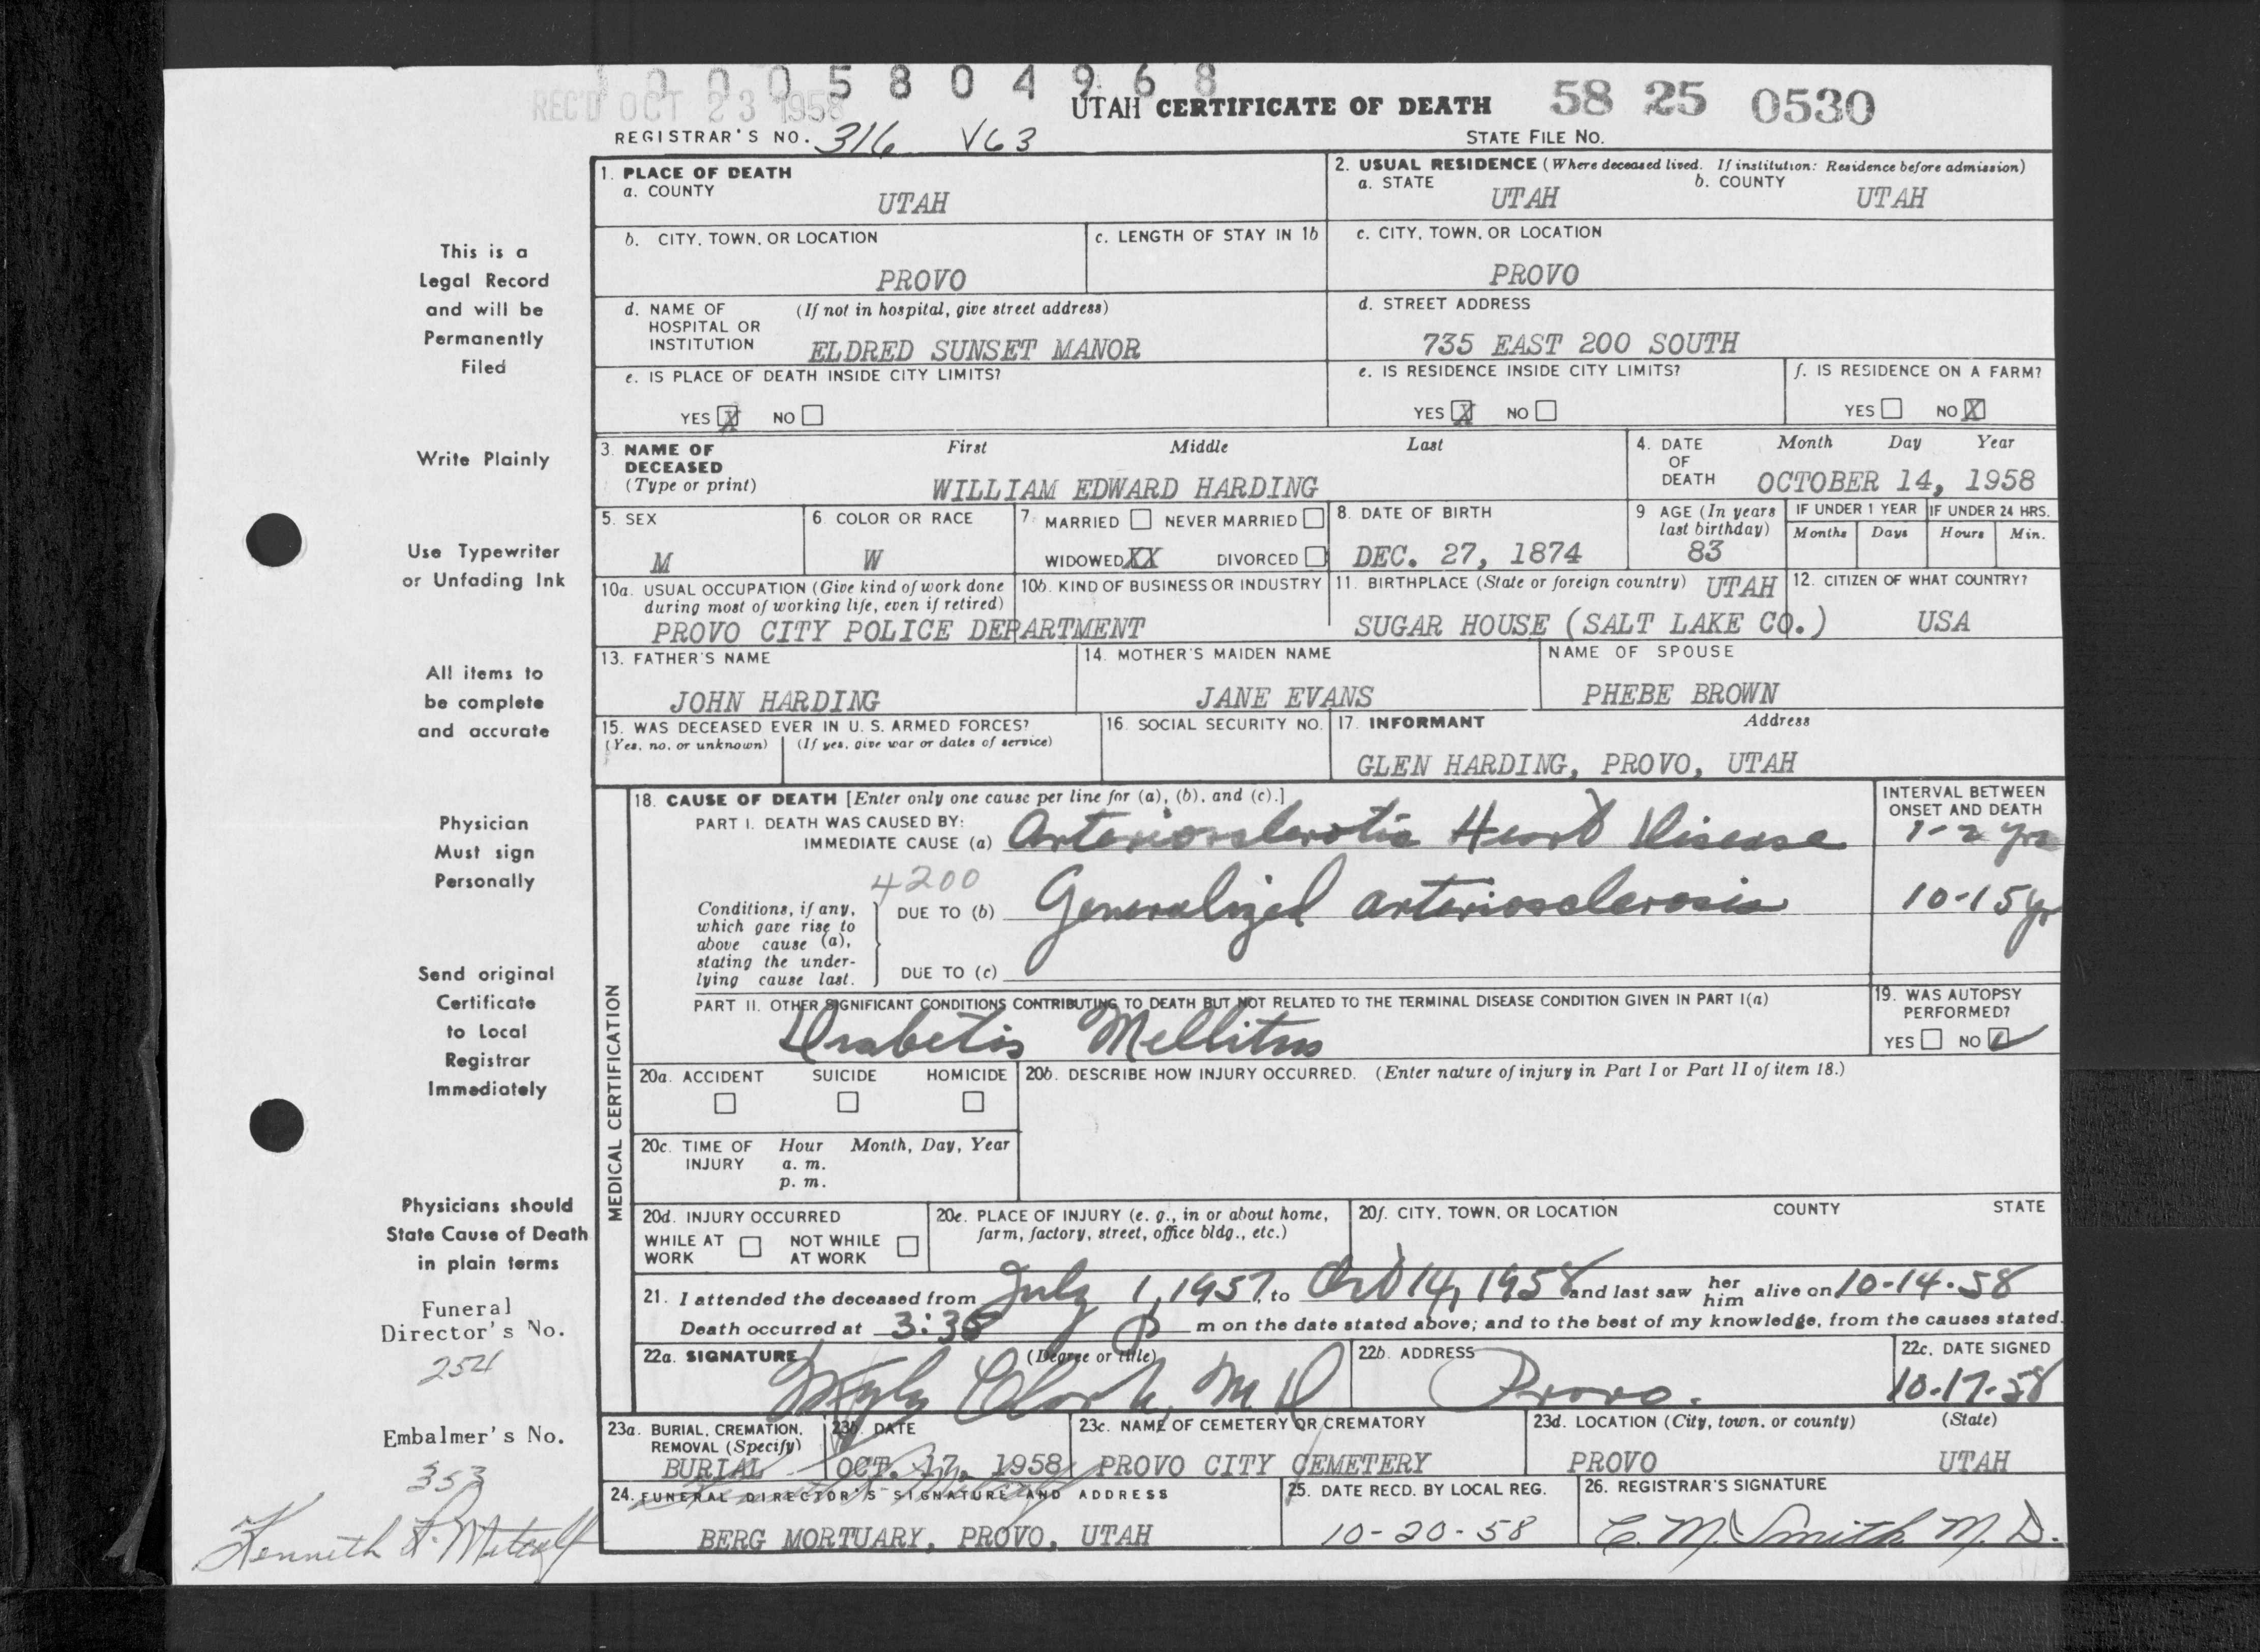 1 0 0 0 5 8 0 4 9 6 8
REC'D OCT 23 1958
UTAH CERTIFICATE OF DEATH 58 25 0530
REGISTRAR'S NO. 316 V63 STATE FILE NO.
1. PLACE OF DEATH
a. COUNTY UTAH
2. USUAL RESIDENCE (Where deceased lived. If institution: Residence before admission)
a. STATE UTAH b. COUNTY UTAH
b. CITY, TOWN, OR LOCATION PROVO
c. LENGTH OF STAY IN 1b
c. CITY, TOWN, OR LOCATION PROVO
d. NAME OF HOSPITAL OR INSTITUTION (If not in hospital, give street address) ELDRED SUNSET MANOR
d. STREET ADDRESS 735 EAST 200 SOUTH
e. IS PLACE OF DEATH INSIDE CITY LIMITS?
YES X NO
e. IS RESIDENCE INSIDE CITY LIMITS?
YES X NO
f. IS RESIDENCE ON A FARM?
YES NO X
3. NAME OF DECEASED (Type or print) First Middle Last
WILLIAM EDWARD HARDING
4. DATE OF DEATH Month Day Year
OCTOBER 14, 1958
5. SEX M
6. COLOR OR RACE W
7. MARRIED NEVER MARRIED
WIDOWED XX DIVORCED
8. DATE OF BIRTH DEC. 27, 1874
9 AGE (In years last birthday) 83
IF UNDER 1 YEAR Months Days
IF UNDER 24 HRS. Hours Min.
10a. USUAL OCCUPATION (Give kind of work done during most of working life, even if retired)
10b. KIND OF BUSINESS OR INDUSTRY
PROVO CITY POLICE DEPARTMENT
11. BIRTHPLACE (State or foreign country) UTAH
SUGAR HOUSE (SALT LAKE CO.)
12. CITIZEN OF WHAT COUNTRY?
USA
13. FATHER'S NAME
JOHN HARDING
14. MOTHER'S MAIDEN NAME
JANE EVANS
NAME OF SPOUSE
PHEBE BROWN
15. WAS DECEASED EVER IN U. S. ARMED FORCES?
(Yes, no, or unknown) (If yes, give war or dates of service)
16. SOCIAL SECURITY NO.
17. INFORMANT Address
GLEN HARDING, PROVO, UTAH
MEDICAL CERTIFICATION
18. CAUSE OF DEATH [Enter only one cause per line for (a), (b), and (c).]
INTERVAL BETWEEN ONSET AND DEATH
PART I. DEATH WAS CAUSED BY:
IMMEDIATE CAUSE (a) Arteriosclerotic Heart Disease 1-2 yrs
4200
Conditions, if any, which gave rise to above cause (a), stating the underlying cause last.
DUE TO (b) Generalized arteriosclerosis 10-15 yr
DUE TO (c)
PART II. OTHER SIGNIFICANT CONDITIONS CONTRIBUTING TO DEATH BUT NOT RELATED TO THE TERMINAL DISEASE CONDITION GIVEN IN PART I(a)
Diabetis Mellitus
19. WAS AUTOPSY PERFORMED?
YES NO
20a. ACCIDENT SUICIDE HOMICIDE
20b. DESCRIBE HOW INJURY OCCURRED. (Enter nature of injury in Part I or Part II of item 18.)
20c. TIME OF INJURY Hour Month, Day, Year
a. m.
p. m.
20d. INJURY OCCURRED
WHILE AT WORK NOT WHILE AT WORK
20e. PLACE OF INJURY (e. g., in or about home, farm, factory, street, office bldg., etc.)
20f. CITY, TOWN, OR LOCATION COUNTY STATE
21. I attended the deceased from July 1, 1957, to Oct 14, 1958 and last saw her him alive on 10-14-58
Death occurred at 3:35 P m on the date stated above; and to the best of my knowledge, from the causes stated.
22a. SIGNATURE (Degree or title)
Clark, M D
22b. ADDRESS
Provo.
22c. DATE SIGNED
10-17-58
23a. BURIAL, CREMATION, REMOVAL (Specify)
BURIAL
23b. DATE
OCT. 17, 1958
23c. NAME OF CEMETERY OR CREMATORY
PROVO CITY CEMETERY
23d. LOCATION (City, town, or county) (State)
PROVO UTAH
24. FUNERAL DIRECTOR'S SIGNATURE AND ADDRESS
BERG MORTUARY, PROVO, UTAH
25. DATE RECD. BY LOCAL REG.
10-20-58
26. REGISTRAR'S SIGNATURE
C. M. Smith M. D.
This is a
Legal Record
and will be
Permanently
Filed
Write Plainly
Use Typewriter
or Unfading Ink
All items to
be complete
and accurate
Physician
Must sign
Personally
Send original
Certificate
to Local
Registrar
Immediately
Physicians should
State Cause of Death
in plain terms
Funeral
Director's No.
254
Embalmer's No.
353
Kenneth L. Metcalf